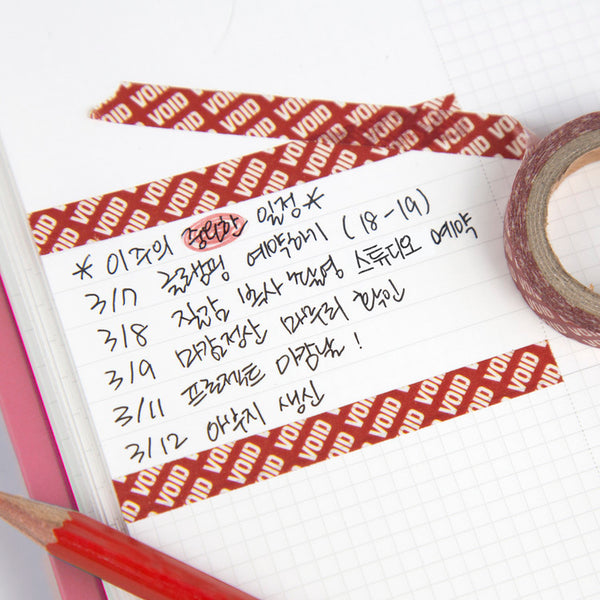 VOID VOID VOID VOID VOID VOID VOID
VOID VOID VOID VOID VOID VOID
* 이주의 중요한 일정 *
3/7 글램핑 예약하기 (18-19)
3/8 스튜디오 예약
3/9 마감정산 마무리 확인
3/11 프로젝트 마감날!
3/12 아부지 생신
VOID VOID VOID VOID VOID VOID VOID